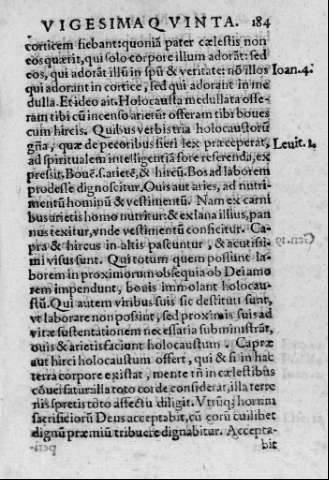 VIGESIMAQVINTA. 184
corticem fiebant: quoniã pater cælestis non
eos quærit, qui solo corpore illum adorãt: sed
eos, qui adorãt illũ in spũ & veritate: nõ illos Ioan. 4.
qui adorant in cortice, sed qui adorant in me
dulla. Et ideo ait. Holocausta medullata offe-
ram tibi cũ incenso arietũ: offeram tibi boues
cum hircis. Quibus verbis tria holocaustorũ
gña, quæ de pecoribus fieri lex præceperat, Leuit. 1.
ad spiritualem intelligentiã fore referenda, ex
pressit. Bouẽ. s. arietẽ, & hircũ. Bos ad laborem
prodesse dignoscitur. Ouis aut aries, ad nutri-
mentũ hominũ & vestimentũ. Nam ex carni
bus arietis homo nutritur: & ex lana illius, pan
nus texitur, vnde vestimentũ conficitur. Ca-
pra & hircus in altis pascuntur, & acutissi-
mi visus sunt. Qui totum quem possunt la-
borem in proximorum obsequia ob Dei amo
rem impendunt, bouis immolant holocau-
stũ. Qui autem viribus suis sic destituti sunt,
vt laborare non possint, sed proximis suis ad
vitæ sustentationem necessaria subministrãt,
ouis & arietis faciunt holocaustum. Capræ
aut hirci holocaustum offert, qui & si in hac
terra corpore existat, mente tñ in cælestibus
cõuersatur: illa toto corde considerat, illa terre
nis spretis toto affectu diligit. Vtrũq; horum
sacrificiorũ Deus acceptabit, cũ eorũ cuilibet
dignũ præmiũ tribuere dignabitur. Accepta-
bit